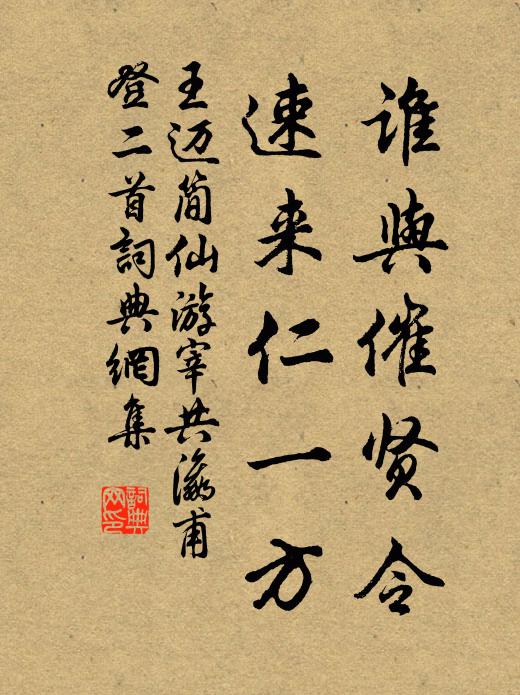 谁與催贤令
速来仁一方
王迈简仙游宰共瀛甫
登二首詞典網集
詞典
网印